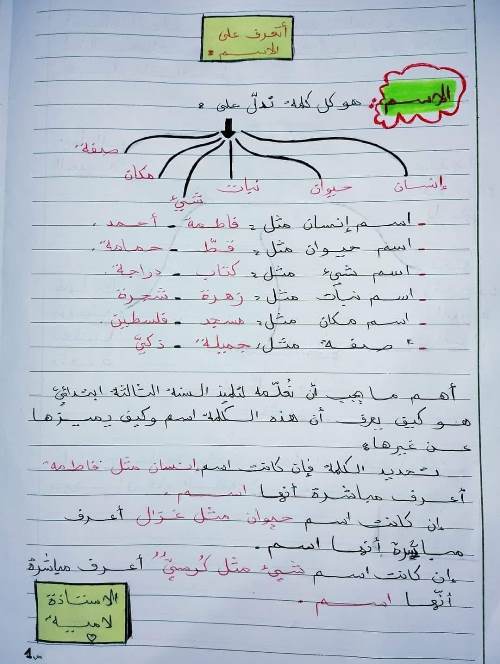 أتعرف على
الاسم:
الاسم: هو كل كلمة تدلّ على:
إنسان حيوان نبات شيئ مكان صفة
- اسم إنسان مثل: فاطمة - أحمد.
- اسم حيوان مثل: قطّ - حمامة.
- اسم شيئ مثل: كتاب - دراجة.
- اسم نبات مثل: زهرة - شجرة
- اسم مكان مثل: مسجد - فلسطين.
- صفة مثل: جميلة - ذكيّ
أهم ما يجب أن نُعلّمه لتلميذ السنة الثالثة ابتدائي
هو كيف يعرف أن هذه الكلمة اسم وكيف يميزها
عن غيرها:
بتحديد الكلمة فإن كانت اسم إنسان مثل فاطمة
أعرف مباشرة أنها اسم.
إن كانت اسم حيوان مثل غزال أعرف
مباشرة أنها اسم.
إن كانت اسم شيئ مثل كُرسيٌّ أعرف مباشرة
أنّها اسم.
الاستاذة
لامية
ص1